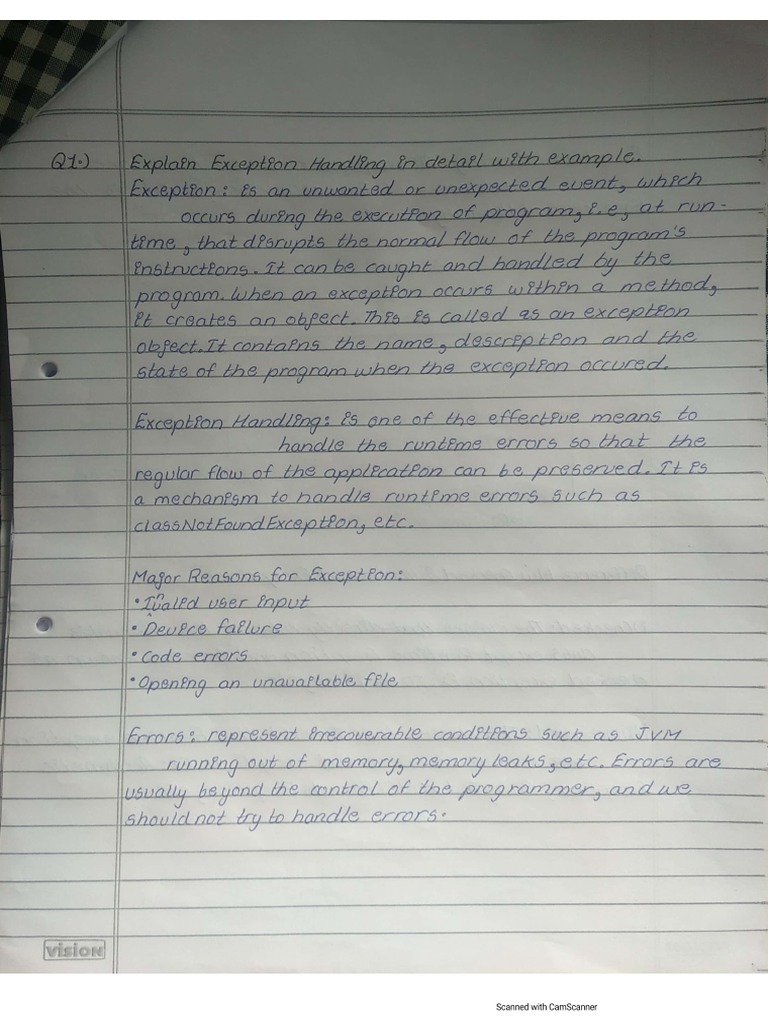 Q1.) Explain Exception Handling in detail with example.
Exception: is an unwanted or unexpected event, which
occurs during the execution of program, i.e, at run-
time, that disrupts the normal flow of the program's
instructions. It can be caught and handled by the
program. When an exception occurs within a method,
it creates an object. This is called as an exception
object. It contains the name, description and the
state of the program when the exception occured.
Exception Handling: is one of the effective means to
handle the runtime errors so that the
regular flow of the application can be preserved. It is
a mechanism to handle runtime errors such as
classNotFoundException, etc.
Major Reasons for Exception:
• Invalid user input
• Device failure
• Code errors
• Opening an unavailable file
Errors: represent irrecoverable conditions such as JVM
running out of memory, memory leaks, etc. Errors are
usually beyond the control of the programmer, and we
should not try to handle errors.
vision
Scanned with CamScanner